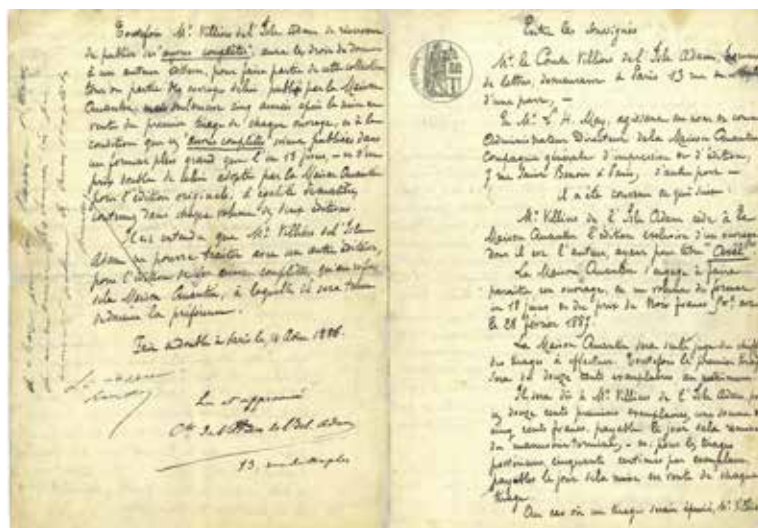 Toutefois Mr. Villiers de l'Isle Adam se réservant
de publier ses "œuvres complètes", aura le droit de donner
à un autre éditeur, pour faire partie de cette collection
tout ou partie des ouvrages de lui publiés par la Maison
Quantin, mais seulement cinq années après la mise en
vente du premier tirage de chaque ouvrage, et à la
condition que ces "œuvres complètes" soient publiées dans
un format plus grand que l'in 18 jésus, et d'un
prix double de celui adopté par la Maison Quantin
pour l'édition originale, à égalité de matière
contenue dans chaque volume des deux éditions.
Il est entendu que Mr. Villiers de l'Isle
Adam ne pourra traiter avec un autre éditeur,
pour l'édition de ses œuvres complètes, qu'au refus
de la Maison Quantin, à laquelle il sera tenu
de donner la préférence.
Fait en double à Paris le, Août 1886.
Lu et approuvé
Cte de Villiers de l'Isle Adam
13, rue de
Entre les soussignés
Mr. le Comte Villiers de l'Isle Adam, homme
de lettres, demeurant à Paris 13 rue de
d'une part, —
Et Mr. L. H. May, agissant au nom et comme
Administrateur Directeur de la Maison Quantin
Compagnie générale d'impression et d'édition,
7 rue Saint Benoit à Paris, d'autre part —
il a été convenu ce qui suit :
Mr. Villiers de l'Isle Adam cède à la
Maison Quantin l'édition exclusive d'un ouvrage
dont il est l'auteur, ayant pour titre "Axël"
La Maison Quantin s'engage à faire
paraître cet ouvrage, en un volume du format
in 18 jésus et du prix de trois francs
le 28 février 1887.
La Maison Quantin sera seule juge du chiffre
des tirages à effectuer. Toutefois le premier tirage
sera de douze cents exemplaires au
Il sera dû à Mr. Villiers de l'Isle Adam, pour
ces douze cents premiers exemplaires, une somme de
cinq cents francs, payable le jour de la remise
du manuscrit terminé, — et, pour les tirages
postérieurs, cinquante centimes par exemplaire,
payables le jour de la mise en vente de chaque
tirage
Au cas où un tirage serait épuisé, Mr. Villiers